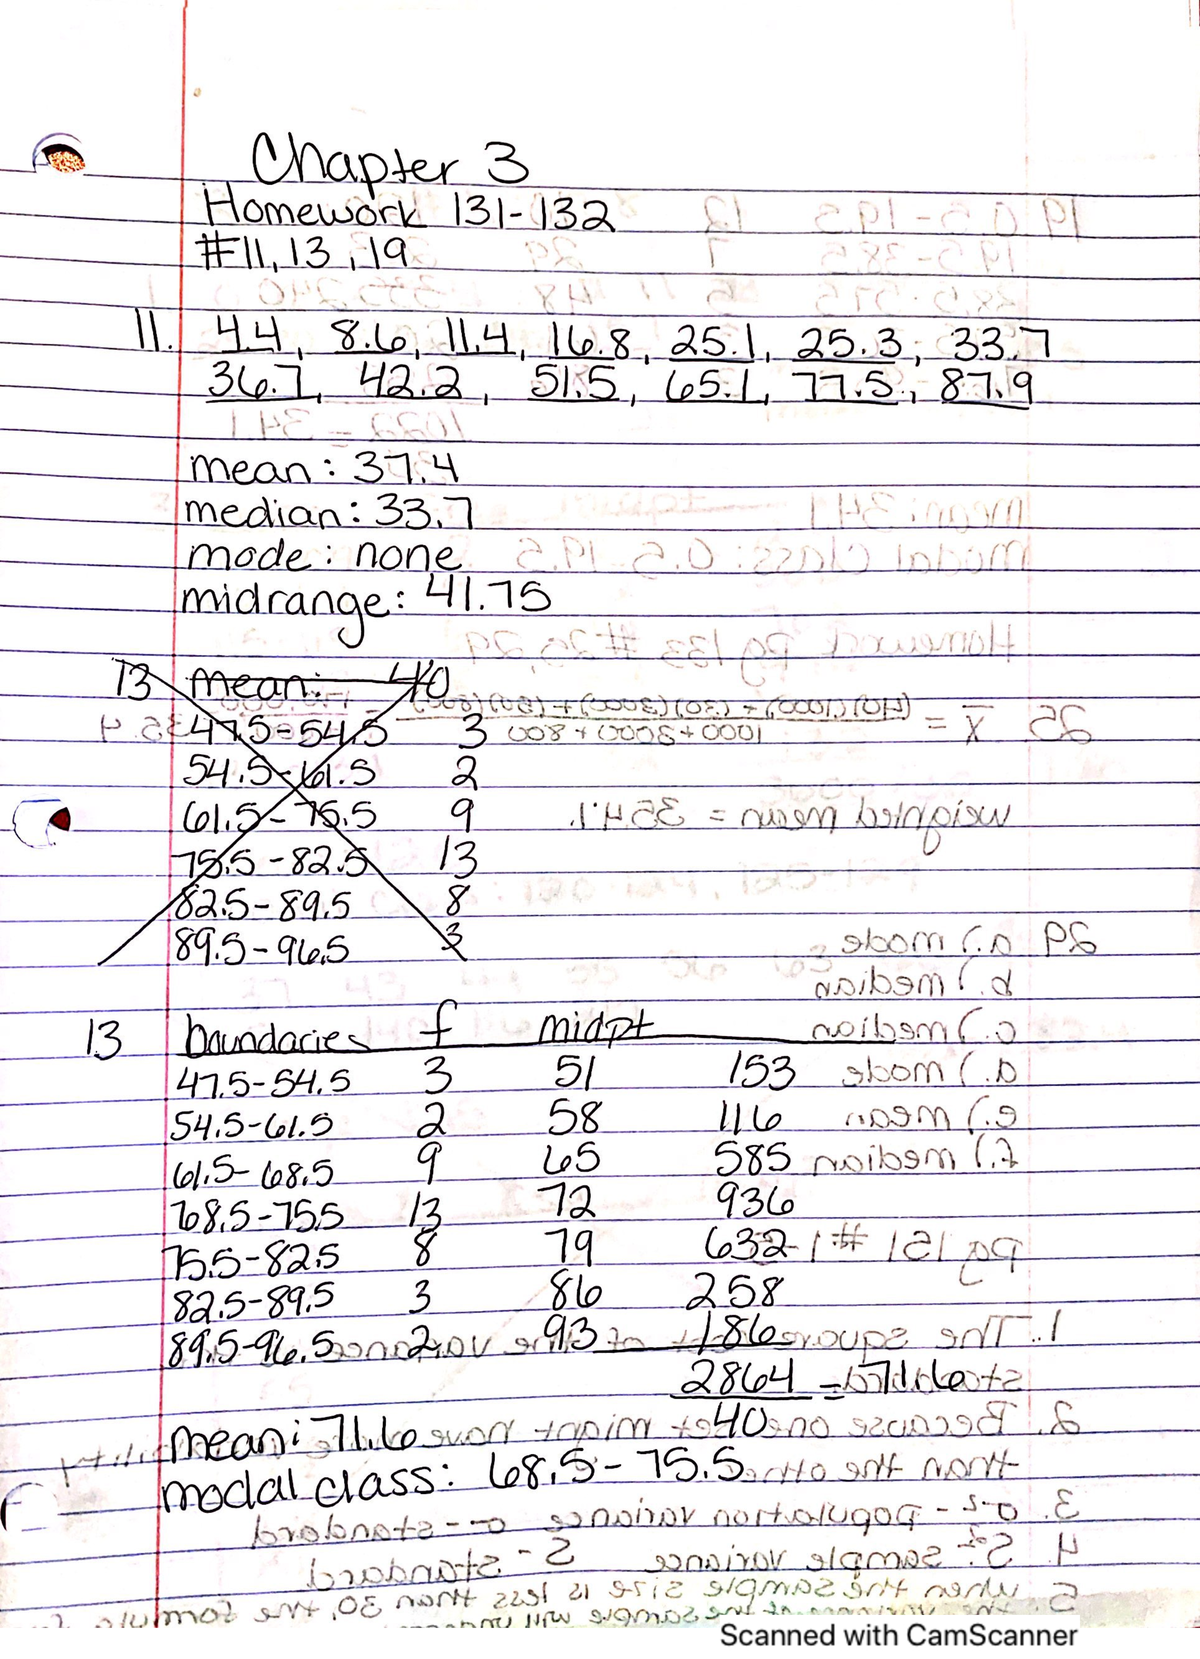 Chapter 3
Homework 131-132
#11, 13, 19
11. 4.4, 8.6, 11.4, 16.8, 25.1, 25.3, 33.7
36.7, 42.2, 51.5, 65.1, 77.5, 87.9
mean: 37.4
median: 33.7
mode: none
midrange: 41.75
13 mean: 40
47.5-54.5 3
54.5-61.5 2
61.5-75.5 9
75.5-82.5 13
82.5-89.5 8
89.5-96.5 3
13 boundaries f midpt
47.5-54.5 3 51 153
54.5-61.5 2 58 116
61.5-68.5 9 65 585
68.5-75.5 13 72 936
75.5-82.5 8 79 632
82.5-89.5 3 86 258
89.5-96.5 2 93 186
2864 = 71.6
40
mean: 71.6
modal class: 68.5-75.5
Scanned with CamScanner